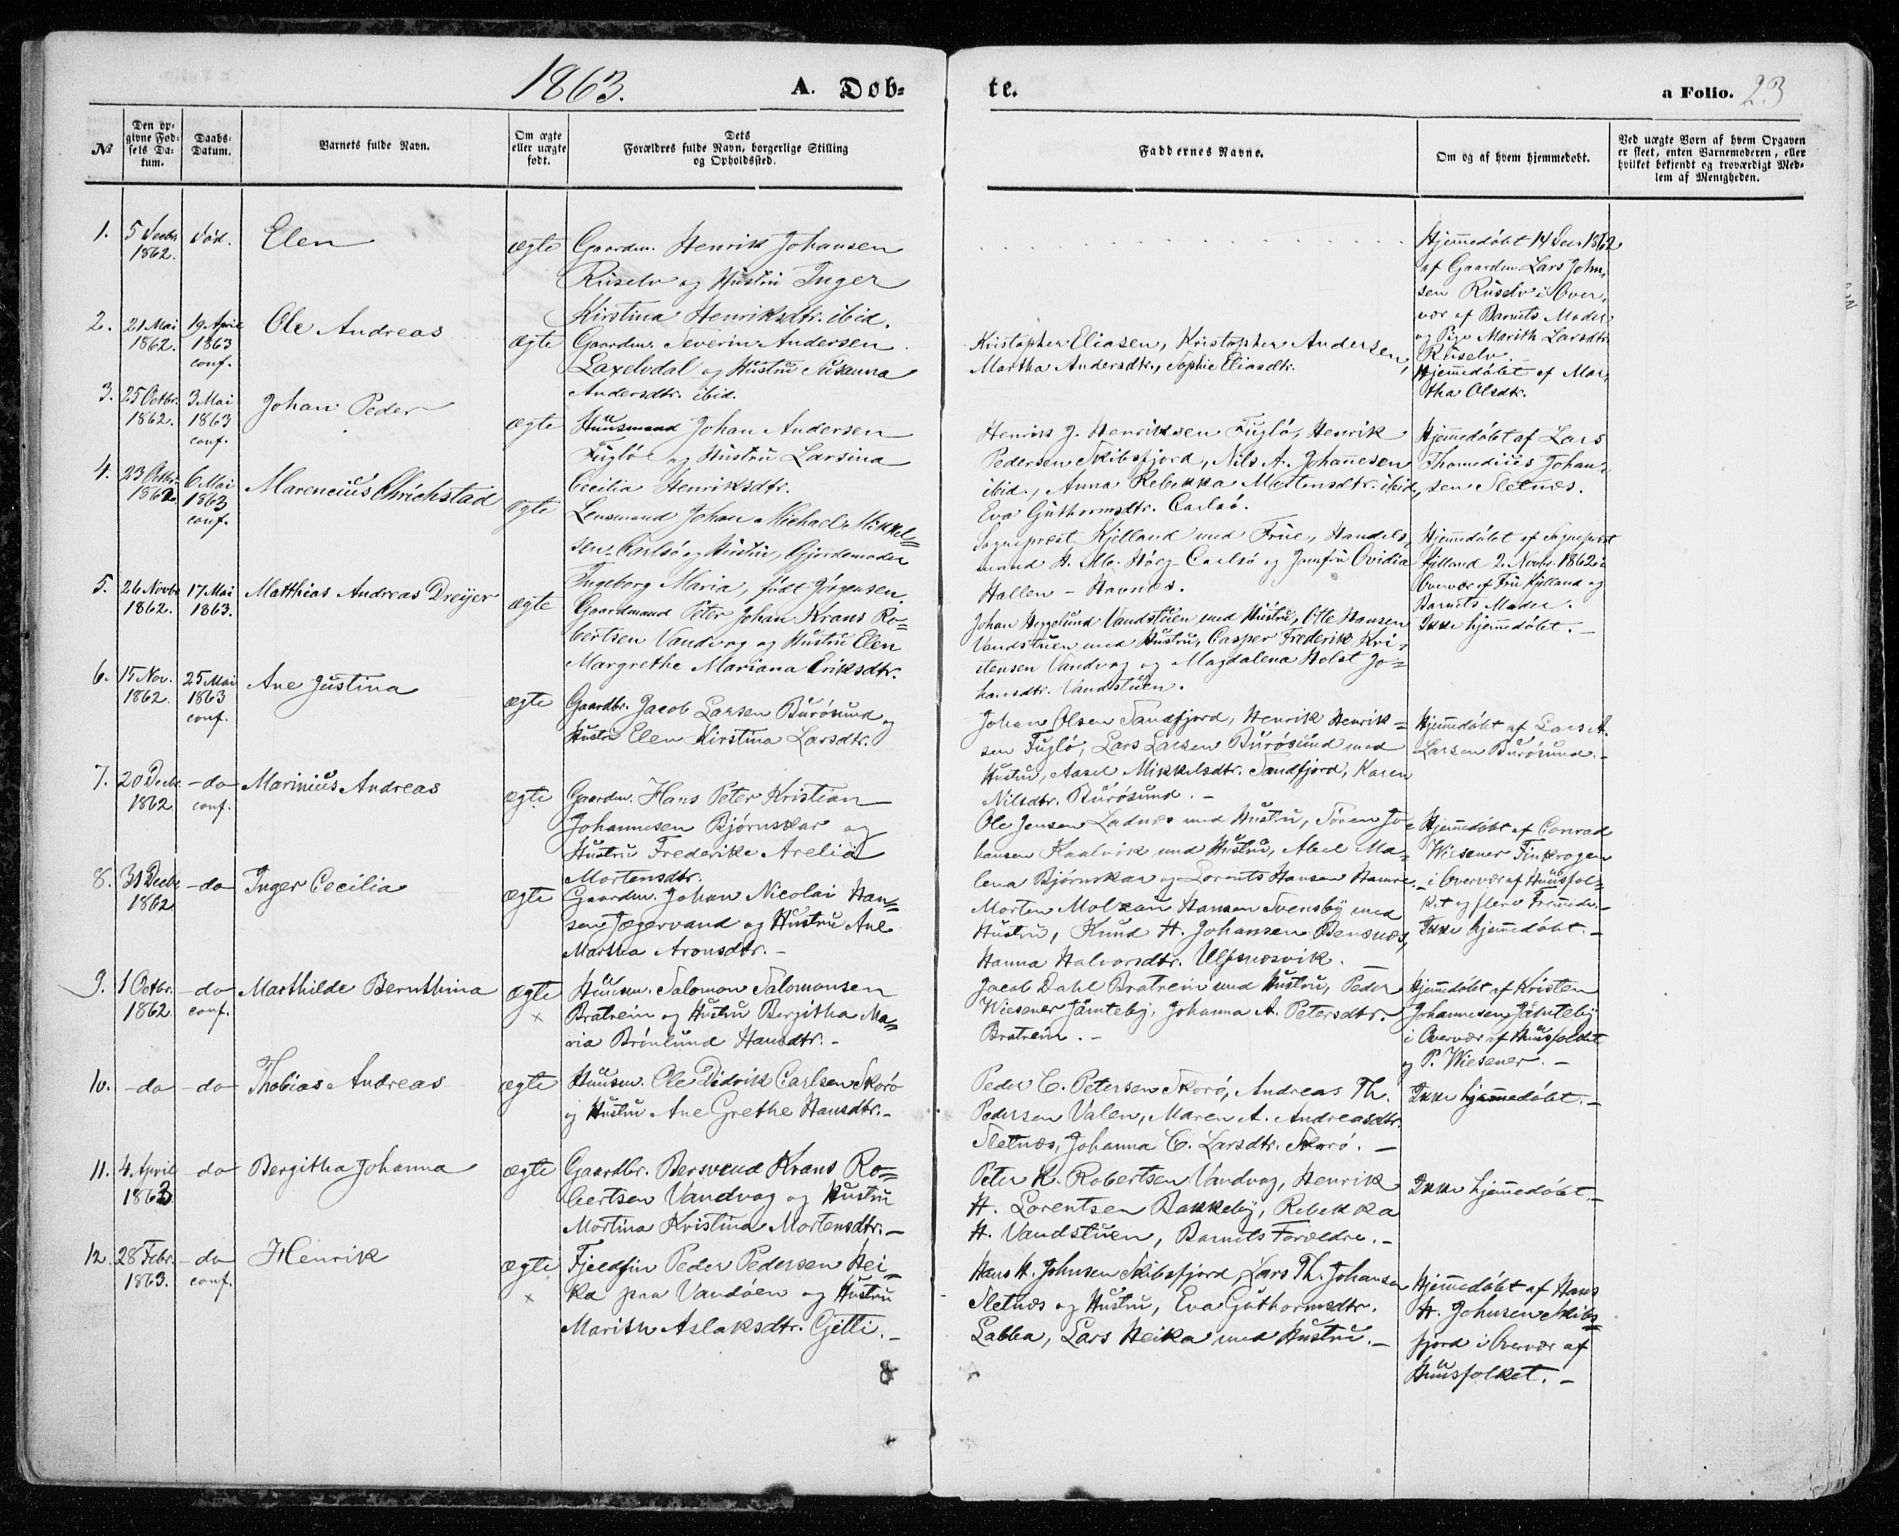 1863.
A. Døb-
te.
a Folio. 23
№
Den op-
givne Fød-
sels Da-
tum.
Daabs-
Datum.
Barnets fulde Navn.
Om ægte
eller uægte
født.
Dets
Forældres fulde Navn, borgerlige Stilling
og Opholdssted.
Faddernes Navne.
Om og af hvem hjemmedøbt.
Ved uægte Børn af hvem Opgaven
er skeet, enten Barnemoderen, eller
hvilket bekjendt og troværdigt Med-
lem af Menigheden.
1.
5 Decbr
1862.
død.
Elen
ægte
Gaardm. Henrik Johansen
Rüselv og Hustru Inger
Kirstina Henriksdtr. ibid.
Hjemmedöbt 14 Dec 1862
af Gaardm. Lars John-
sen Rüselv i Over-
vær af Barnets Moder
og Pige Marith Larsdtr
Rüselv.
2.
21 Mai
1862.
19 April
1863
conf.
Ole Andreas
ægte
Gaardm. Severin Andersen
Laxelvdal og Hustru Susanna
Andersdtr. ibid.
Kristopher Eliasen, Kristopher Andersen,
Martha Andersdtr., Sophie Eliasdtr.
Hjemmedöbt af Mar-
tha Olsdtr.
3.
25 Octbr.
1862.
3 Mai
1863
conf.
Johan Peder
ægte
Huusmand Johan Andersen
Fuglö og Hustru Larsina
Cecilia Henriksdtr.
Henrik J. Henriksen Fuglö, Henrik
Pedersen Skibsfjord, Nils A. Johannesen
ibid., Anna Rebekka Mortensdtr. ibid,
Eva Guthormsdtr. Carlsö.
Hjemmedöbt af Lars
Thomedius Johan-
sen Sletnæs.
4.
23 Octbr.
1862.
6 Mai
1863
conf.
Marencius Chrichstad
ægte
Lensmand Johan Michael Mikkel-
sen Carlsö og Hustru, Gjordemoder
Ingeborg Maria, født Jörgensen.
Sognepræst Kjelland med Frue, Handels-
mand H. Mb. Höeg Carlsö og Jomfru Ovidia
Hallen - Havnæs.
Hjemmedöbt af Sognepræst
Kjelland 2. Novbr. 1862 i
Overvær af Fru Kjelland og
Barnets Moder.
5.
26 Novbr
1862.
17 Mai
1863.
Matthias Andreas Dreyer
ægte
Gaardmand Peter Johan Krans Ro-
bertsen Vandvag og Hustru Elen
Margrethe Mariana Eriksdtr.
Johan Heggelund Vandstuen med Hustru, Ole Hansen
Vandstuen med Hustru, Casper Frederik Kri-
stensen Vandvag og Magdalena Holst Jo-
hansdtr. Vandstuen.
Ikke hjemmedöbt. -
6.
15 Nov.
1862.
25 Mai
1863
conf.
Ane Justina
ægte
Gaardbr. Jacob Larsen Burösund og
Hustru Elen Kirstina Larsdtr.
Johan Olsen Sandfjord, Henrik Henrik-
sen Fuglö, Lars Larsen Burösund med
Hustru, Aasel Mikkelsdtr. Sandfjord, Karen
Nilsdtr. Burösund. -
Hjemmedöbt af Lars A.
Larsen Burösund. -
7.
20 Decbr.
1862
- do
conf.
Marinius Andreas
ægte
Gaardm. Hans Peter Kristian
Johannesen Bjørnskar og
Hustru Frederike Arelia
Mortensdtr.
Ole Jensen Ladnæs med Hustru, Sören Jo-
hansen Kaalvik med Hustru, Abel Ma-
lena Bjørnskar og Lorents Hansen Hamre. -
Hjemmedöbt af Conrad
Wiesener Finkrogen
i Overvær af Huusfol-
ket og flere Fremede. -
8.
31 Decbr
1862
- do
Inger Cecilia
ægte
Gaardm. Johan Nicolai Han-
sen Jægervand og Hustru Ane
Martha Aronsdtr. -
Morten Molzau Hansen Svensby med
Hustru, Knud H. Johansen Bensnæs,
Hanna Halvorsdtr. Ulfsnæsvik. -
Ikke hjemmedöbt. -
9.
1 Octbr.
1862
- do
conf.
Marthilde Bernthina
ægte
×
Huusm. Salomon Salomonsen
Bratrein og Hustru Bergitha Ma-
ria Brönlund Hansdtr. -
Jacob Dahl Bratrein med Hustru, Peder
Wiesener Jämteby, Johanna A. Petersdtr.
Bratrein. -
Hjemmedöbt af Kristen
Johannesen Jämteby
i Overvær af Huusfolket
og P. Wiesener. -
10.
- do
- do
Thobias Andreas
ægte
Huusm. Ole Didrik Carlsen Skorö
og Hustru Ane Grethe Hansdtr. -
Peder C. Petersen Skorö, Andreas Th.
Pedersen Valen, Maren A. Andreasdtr.
Sletnæs, Johanna C. Larsdtr. Skorö. -
Ikke hjemmedöbt. -
11.
4. April
1863
- do
Bergitha Johanna
ægte
Gaardbr. Bersvend Krans Ro-
bertsen Vandvag og Hustru
Mortina Kristina Mortensdtr. -
Peter K. Robertsen Vandvag, Henrik
H. Lorentsen Bakkeby, Rebekka
H. Vandstuen, Barnets Forældre. -
Ikke hjemmedöbt. -
12.
28 Febr.
1863.
- do
conf.
Henrik
ægte
×
Fjeldfin Peder Pedersen Hei-
ka paa Vandöen og Hustru
Marith Aslaksdtr. Gjetti. -
Hans H. Johnsen Skibsfjord, Lars Th. Johansen
Sletnæs og Hustru, Eva Guthormsdtr.
Labba, Lars Heika med Hustru. -
Hjemmedöbt af Hans
H. Johnsen Skibs-
fjord i Overvær af
Huusfolket. -